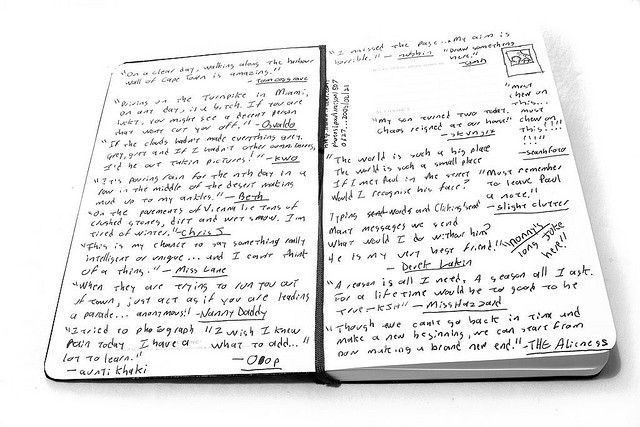 "On a clear day, walking along the harbour
wall of Cape Town is amazing."
"Driving on the Turnpike in Miami,
on any day, is a bitch. If you are
lucky, you might see a decent person
that wont cut you off." - Osvaldo
"If the clouds hadn't made everything grey,
grey, grey and if I hadn't other commitments,
I'd be out takin pictures!" - KWO
"It's pouring rain for the nth day in a
row in the middle of the desert making
mud up to my ankles." - Beth
"On the pavements of Vienna lie tons of
crushed stones, dirt and wet snow. I'm
tired of winter." - Chris J
"This is my chance to say something really
intelligent or unique... and I can't think
of a thing." - Miss Lane
"When they are trying to run you out
of town, just act as if you are leading
a parade... anonymous!" - Nanny Daddy
"I tried to photograph
Rain today I have a
lot to learn."
- aunti khaki
"I wish I knew
what to add..."
- Ooop
"I missed the page... My aim is
horrible." - nushin
"Draw something
here."
"My son turned two today.
Chaos reigned at our house!"
- skungix
"must
chew on
this...
must
chew on
this...!
- seanhfoto
"The world is such a big place
The world is such a small place
If I met Paul in the street
Would I recognise his face?
"Must remember
to leave Paul
a note."
- slight clutter
Typing send words and Clicking send
Many messages we send
What would I do without him
He is my very best friend!"
- Derek Lakin
nonni's
long joke
here!!
"A reason is all I need, A season all I ask.
For a lifetime would be to good to be
true - KSH" - MissHazzard
"Though we can't go back in time and
make a new beginning, we can start from
now making a brand new end." - THE Aliceness